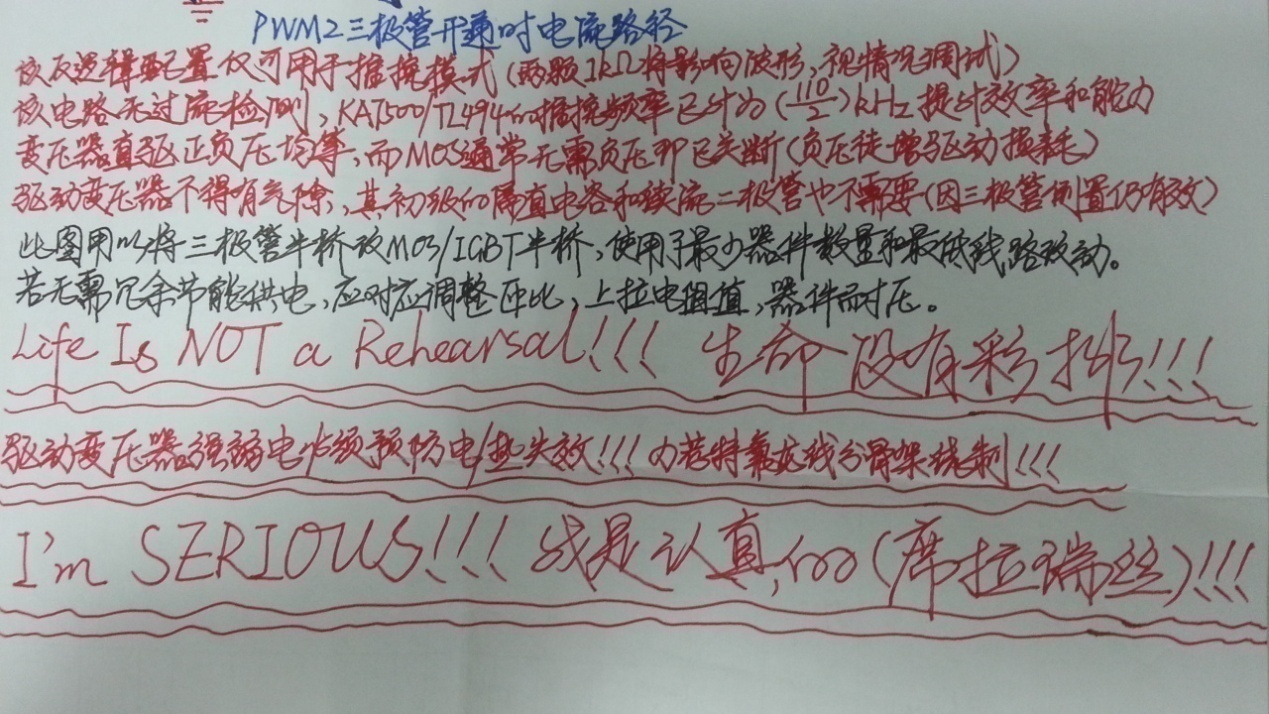 PWM2三极管开通时电流路径
该反逻辑配置仅可用于推挽模式(两颗1kΩ将影响波形,视情况调试)
该电路无过流检测,KA7500/TL494的推挽频率已计为(110/2)kHz提升效率和能力
变压器直驱正负压均等,而MOS通常无需负压即已关断(负压徒增驱动损耗)
驱动变压器不得有气隙,其初级的隔直电容和续流二极管也不需要(因三极管倒置仍有效)
此图用以将三极管半桥改MOS/IGBT半桥,使用了最少器件数量和最低线路改动。
若无需冗余节能供电,应对应调整匝比,上拉电阻值,器件耐压。
Life Is NOT a Rehearsal!!! 生命没有彩排!!!
驱动变压器强弱电必须预防电/热失效!!!力荐特氟龙线分骨架绕制!!!
I'm SERIOUS!!! 我是认真的(席拉瑞丝)!!!